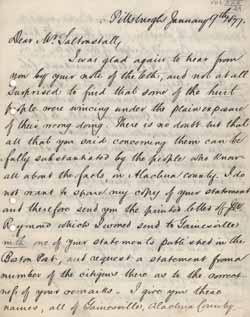 Pittsburgh January 17th 1877.
Dear Mr. Saltonstall,
I was glad again to hear from
you by your note of the 10th, and not at all
surprised to find that some of the
people were wincing under the plain exposure
of their wrong doing. There is no doubt but that
all that you said concerning them can be
fully substantiated by the people who know
all about the facts, in Alachua County. I do
not want to spare my copy of your statement
and therefore send you the printed letter of
which I would send to Gainesville
with one of your statements published in the
Boston Post, and request a statement from a
number of the citizens there as to the correct
ness of your remarks. I give you these
names, all of Gainesville, Alachua County